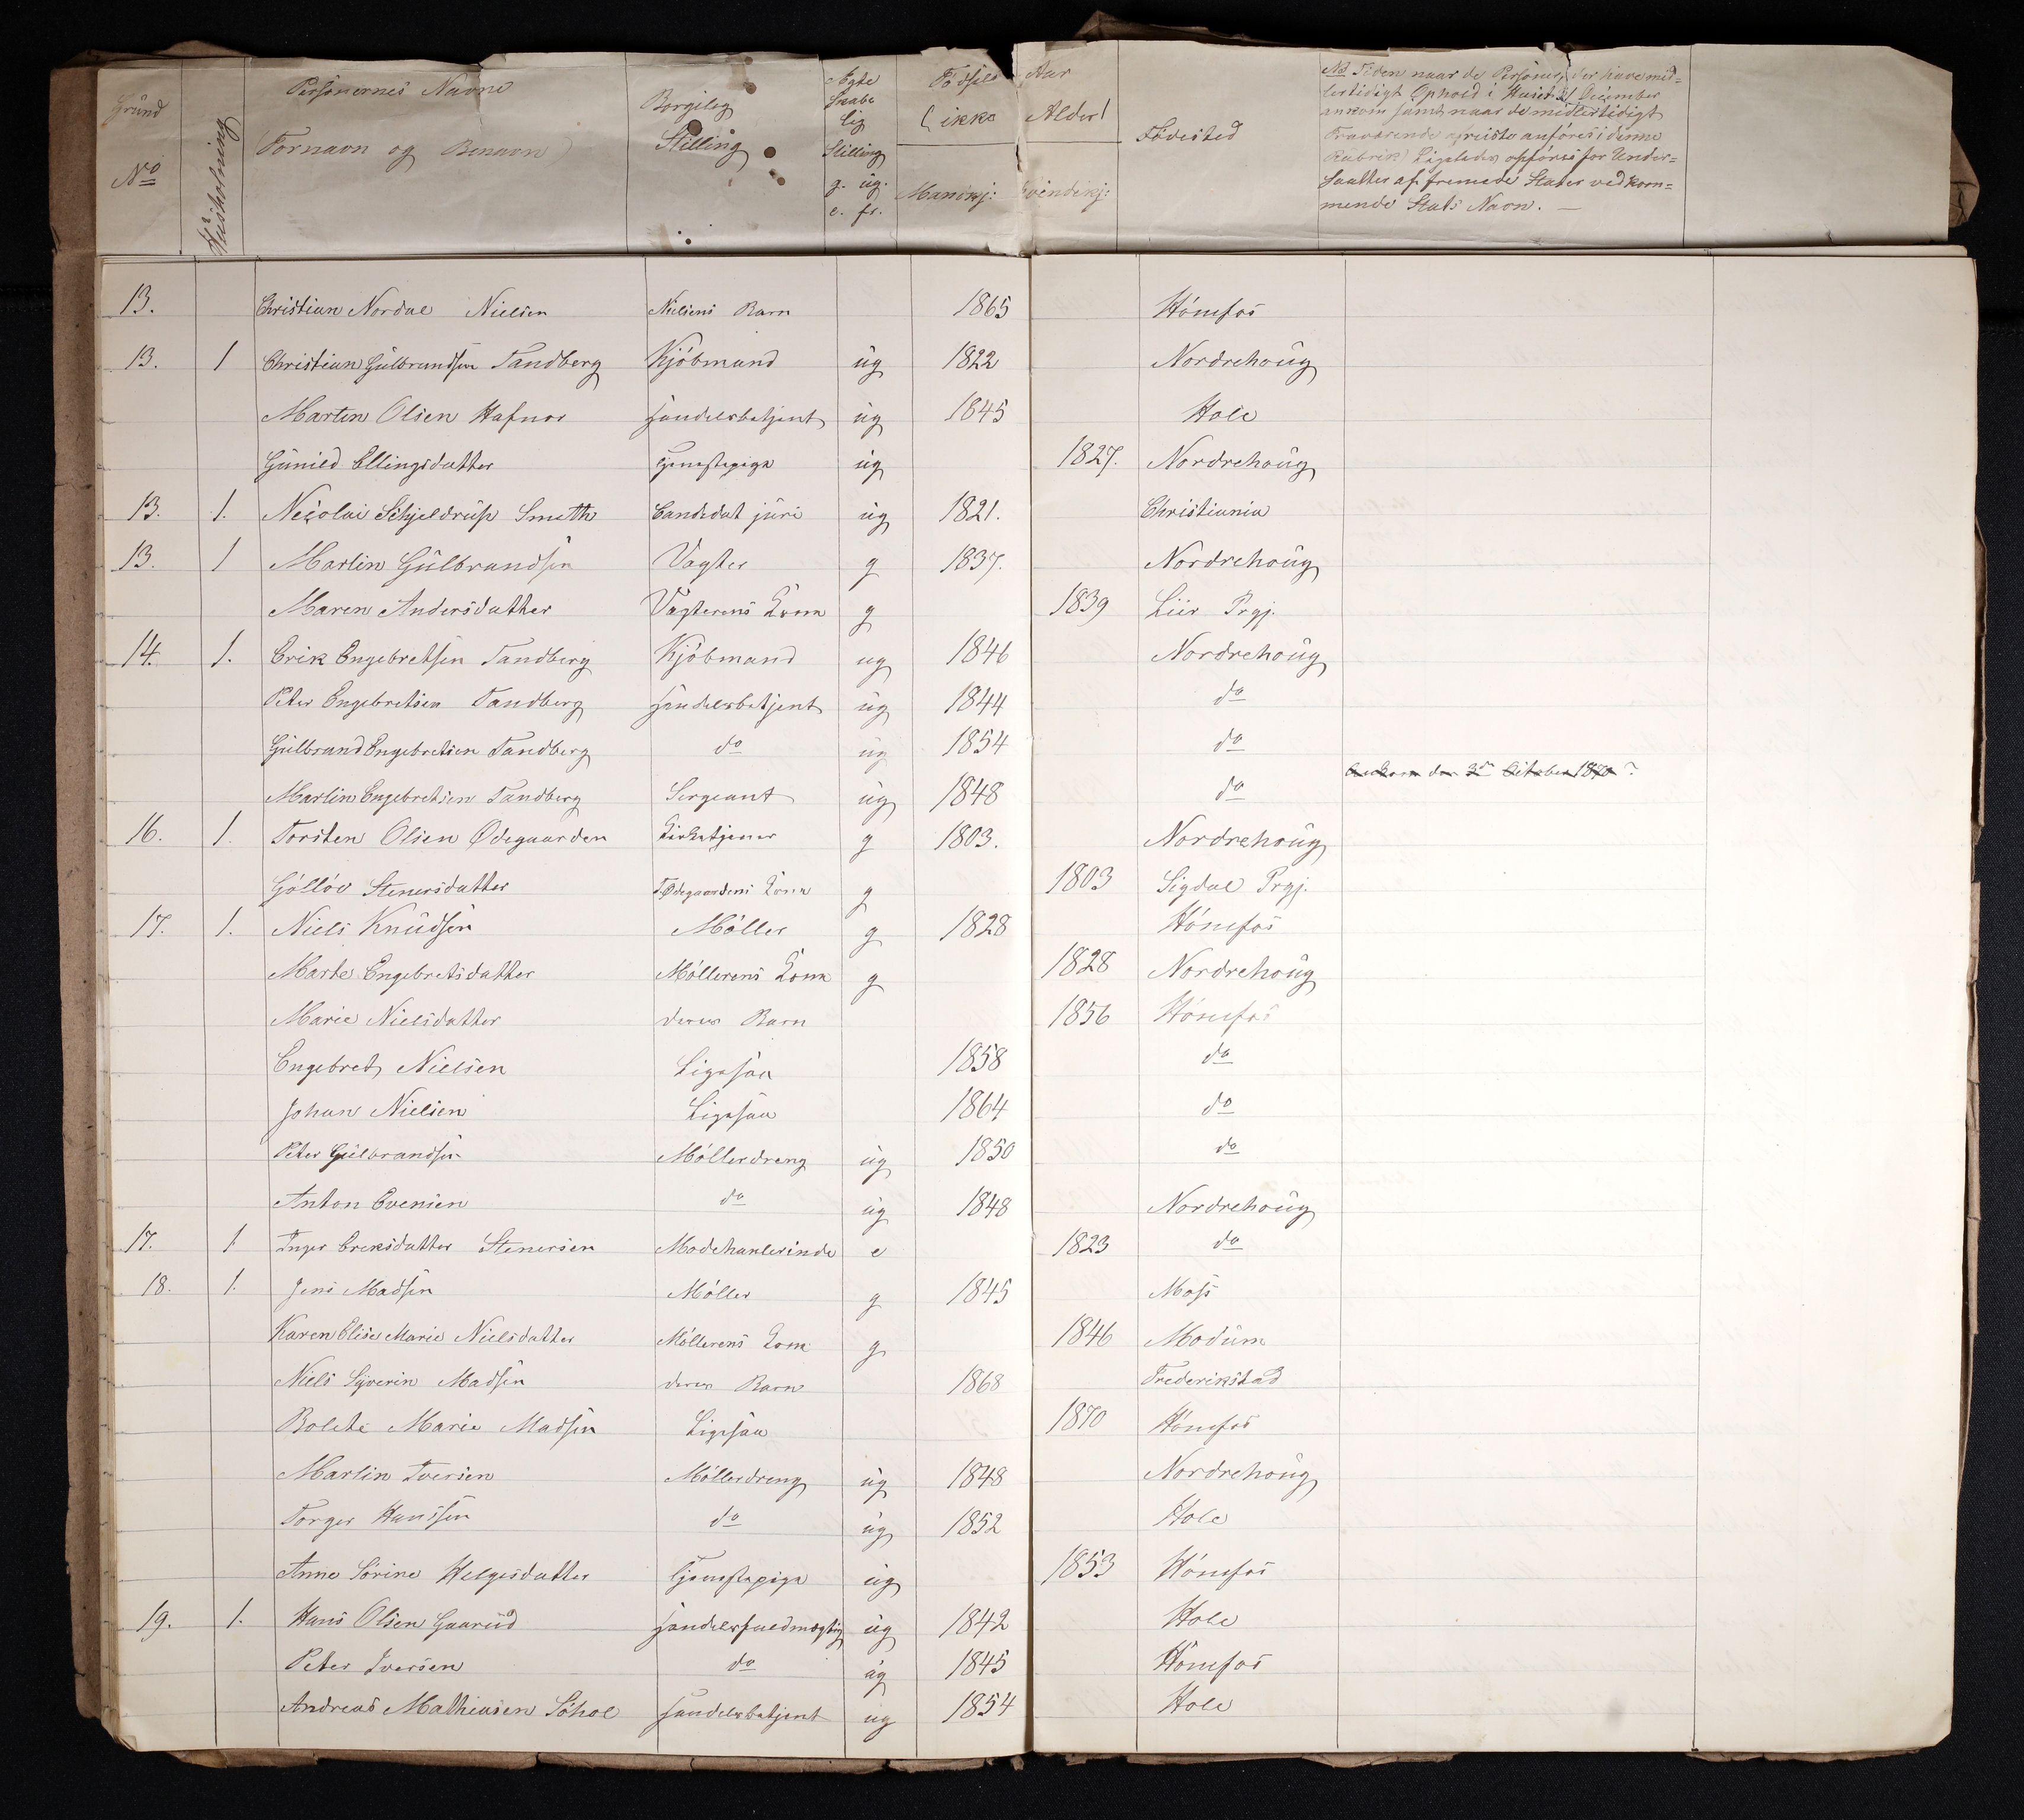 Grund No
Husholdning
Personernes Navne
Fornavn og Benavn)
Borgileg Stilling
Ægteskabelig Stilling g. ug. e. fr.
Fødsels Aar
(ikke Alder)
Mandkj: Qvindekj:
Fødested
NB Tiden naar de Personer, der have mid=
lertidigt Ophold i Huset 31 December
ankom samt naar de midlertidigt
Fraværende afreiste anføres i denne
Rubrik) Ligeledes opføres for Under=
saatter af fremede Stater vedkom=
mende Stats Navn. —
13. Christian Nordal Nielsen Nielsens Barn 1865 Hönefos
13. 1 Christian Gülbrandsen Tandberg Kjöbmand üg 1822 Nordrehoüg
Martin Olsen Hafnor Handelsbetjent üg 1845 Hole
Günild Ellingsdatter Tjenestepige üg 1827. Nordrehoüg
13. 1. Nicolai Schjeldrüp Smith Candidat jüri üg 1821. Christiania
13. 1 Martin Gülbrandsen Vægter g 1837. Nordrehoüg
Maren Andersdatter Vægterens Kone g 1839 Liir Prgj.
14. 1. Erik Engebretsen Tandberg Kjöbmand ug 1846 Nordrehoüg
Peter Engebretsen Tandberg Handelsbetjent üg 1844 do
Gülbrand Engebretsen Tandberg do üg 1854 do
Ankom den 3de October 1870.
Martin Engebretsen Tandberg Sergeant üg 1848 do
16. 1. Torsten Olsen Ødegaarden Kirketjener g 1803. Nordrehoüg
Göllöv Stenersdatter T. Ødegaardens Kone g 1803 Sigdal Prgj.
17. 1. Niels Knüdsen Möller g 1828 Hönefos
Marte Engebretsdatter Möllerens Kone g 1828 Nordrehoüg
Marie Nielsdatter deres Barn 1856 Hönefos
Engebret Nielsen Ligesaa 1858 do
Johan Nielsen Ligesaa 1864 do
Peter Gülbrandsen Möllerdreng üg 1850 do
Anton Evensen do üg 1848 Nordrehoüg
17. 1 Inger Ericksdatter Stenersen Modehanlerinde e 1823 do
18. 1. Jens Madsen Möller g 1845 Moss
Karen Elise Marie Nielsdatter Möllerens Kone g 1846 Modüm
Niels Syverin Madsen deres Barn 1868 Frederikstad
Bolette Marie Madsen Ligesaa 1870 Hönefos
Martin Iversen Möllerdreng üg 1848 Nordrehoüg
Torger Hanssen do üg 1852 Hole
Anne Sörine Helgesdatter Tjenestepige üg 1853 Hönefos
19. 1. Hans Olsen Gaarüd Handelsfuldmægtig üg 1842 Hole
Peter Iversen do üg 1845 Hönefos
Andreas Mathiasen Söhol Handelsbetjent ug 1854 Hole